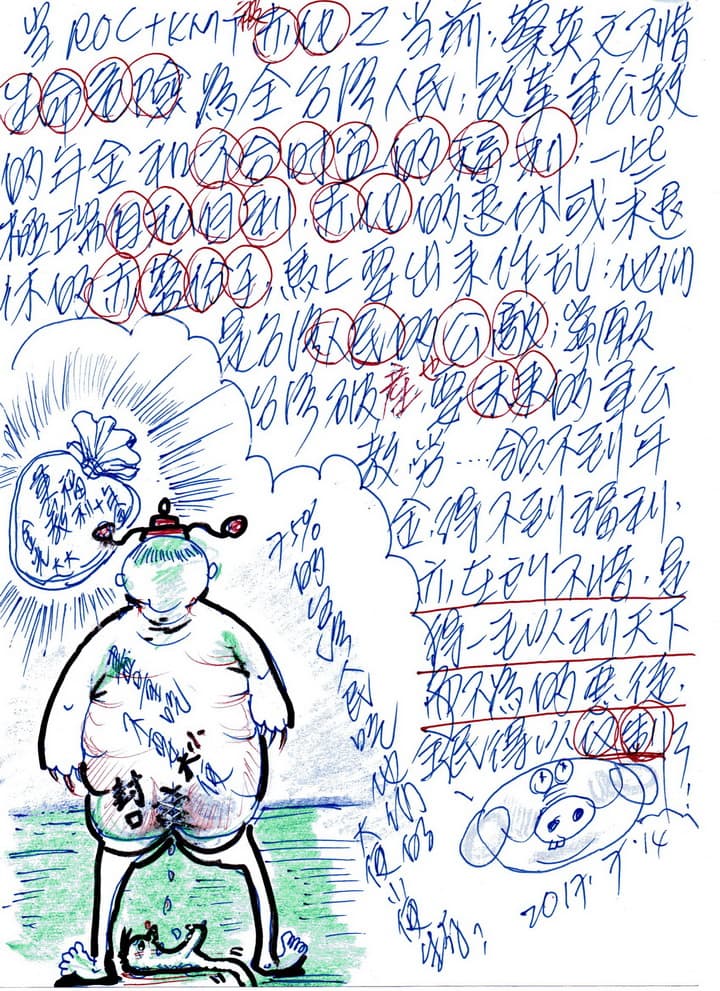 当ROC+KMT被赤化之当前,蔡英文不惜
生命危險為全台湾人民;改革軍公教
的年金和不合时宜的福利;一些
極端自私自利,赤化的退休或未退
休的赤色份子,馬上要出来作乱;他们
是台湾人民的公敵;寧願
台湾破產也要未来的軍公
教劳…領不到年
金,得不到福利,
亦在所不惜,是
得一毛以利天下
而不為的惡徒.
全民得以
封口
75%的台湾人民吃他们的大便小便
2017.7.14